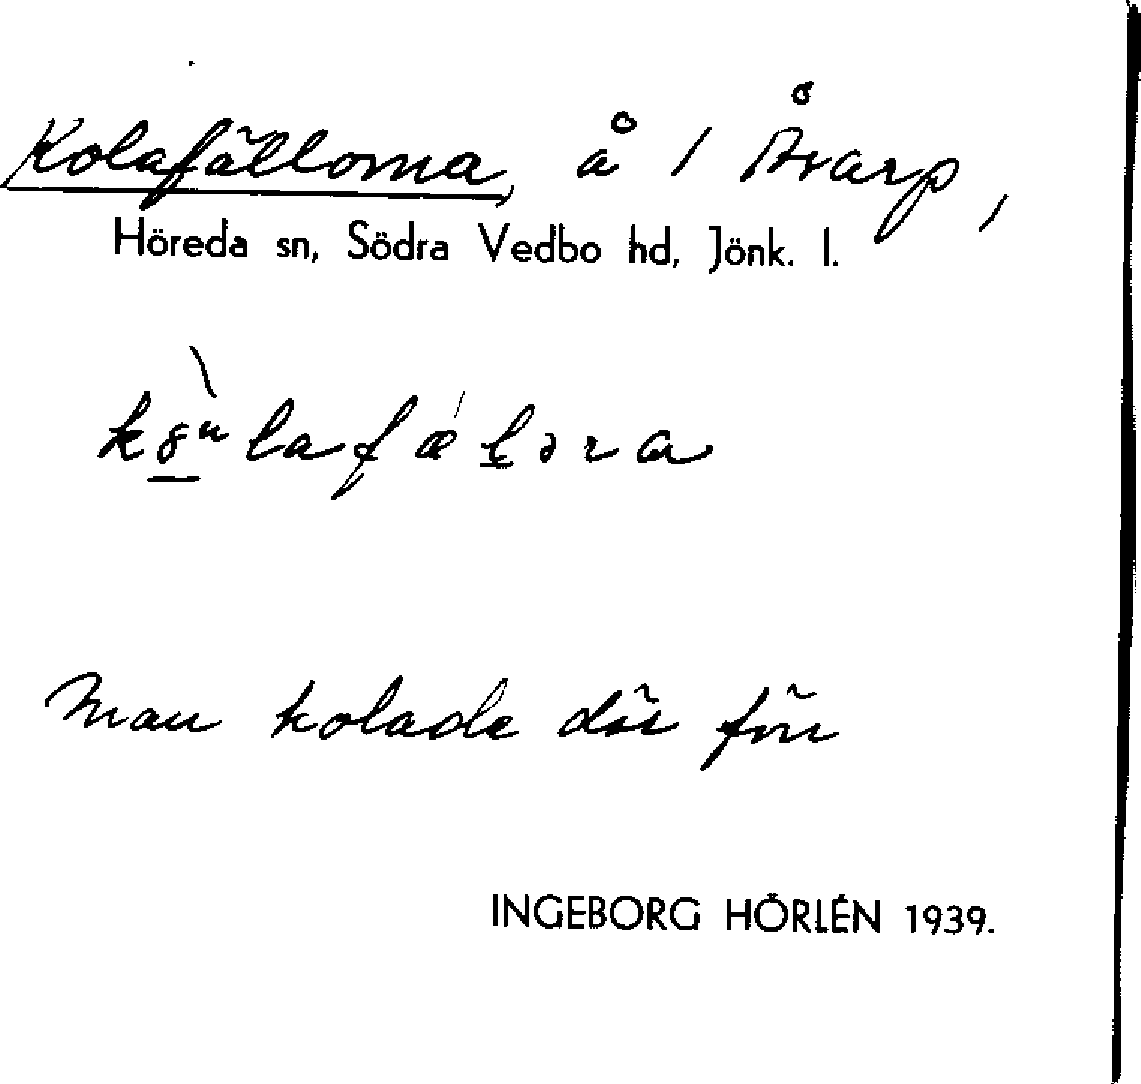 Kolafällorna, å 1 Åvarp,
Höreda sn, Södra Vedbo hd, Jönk. l.
Man kolade där förr
INGEBORG HÖRLÉN 1939.